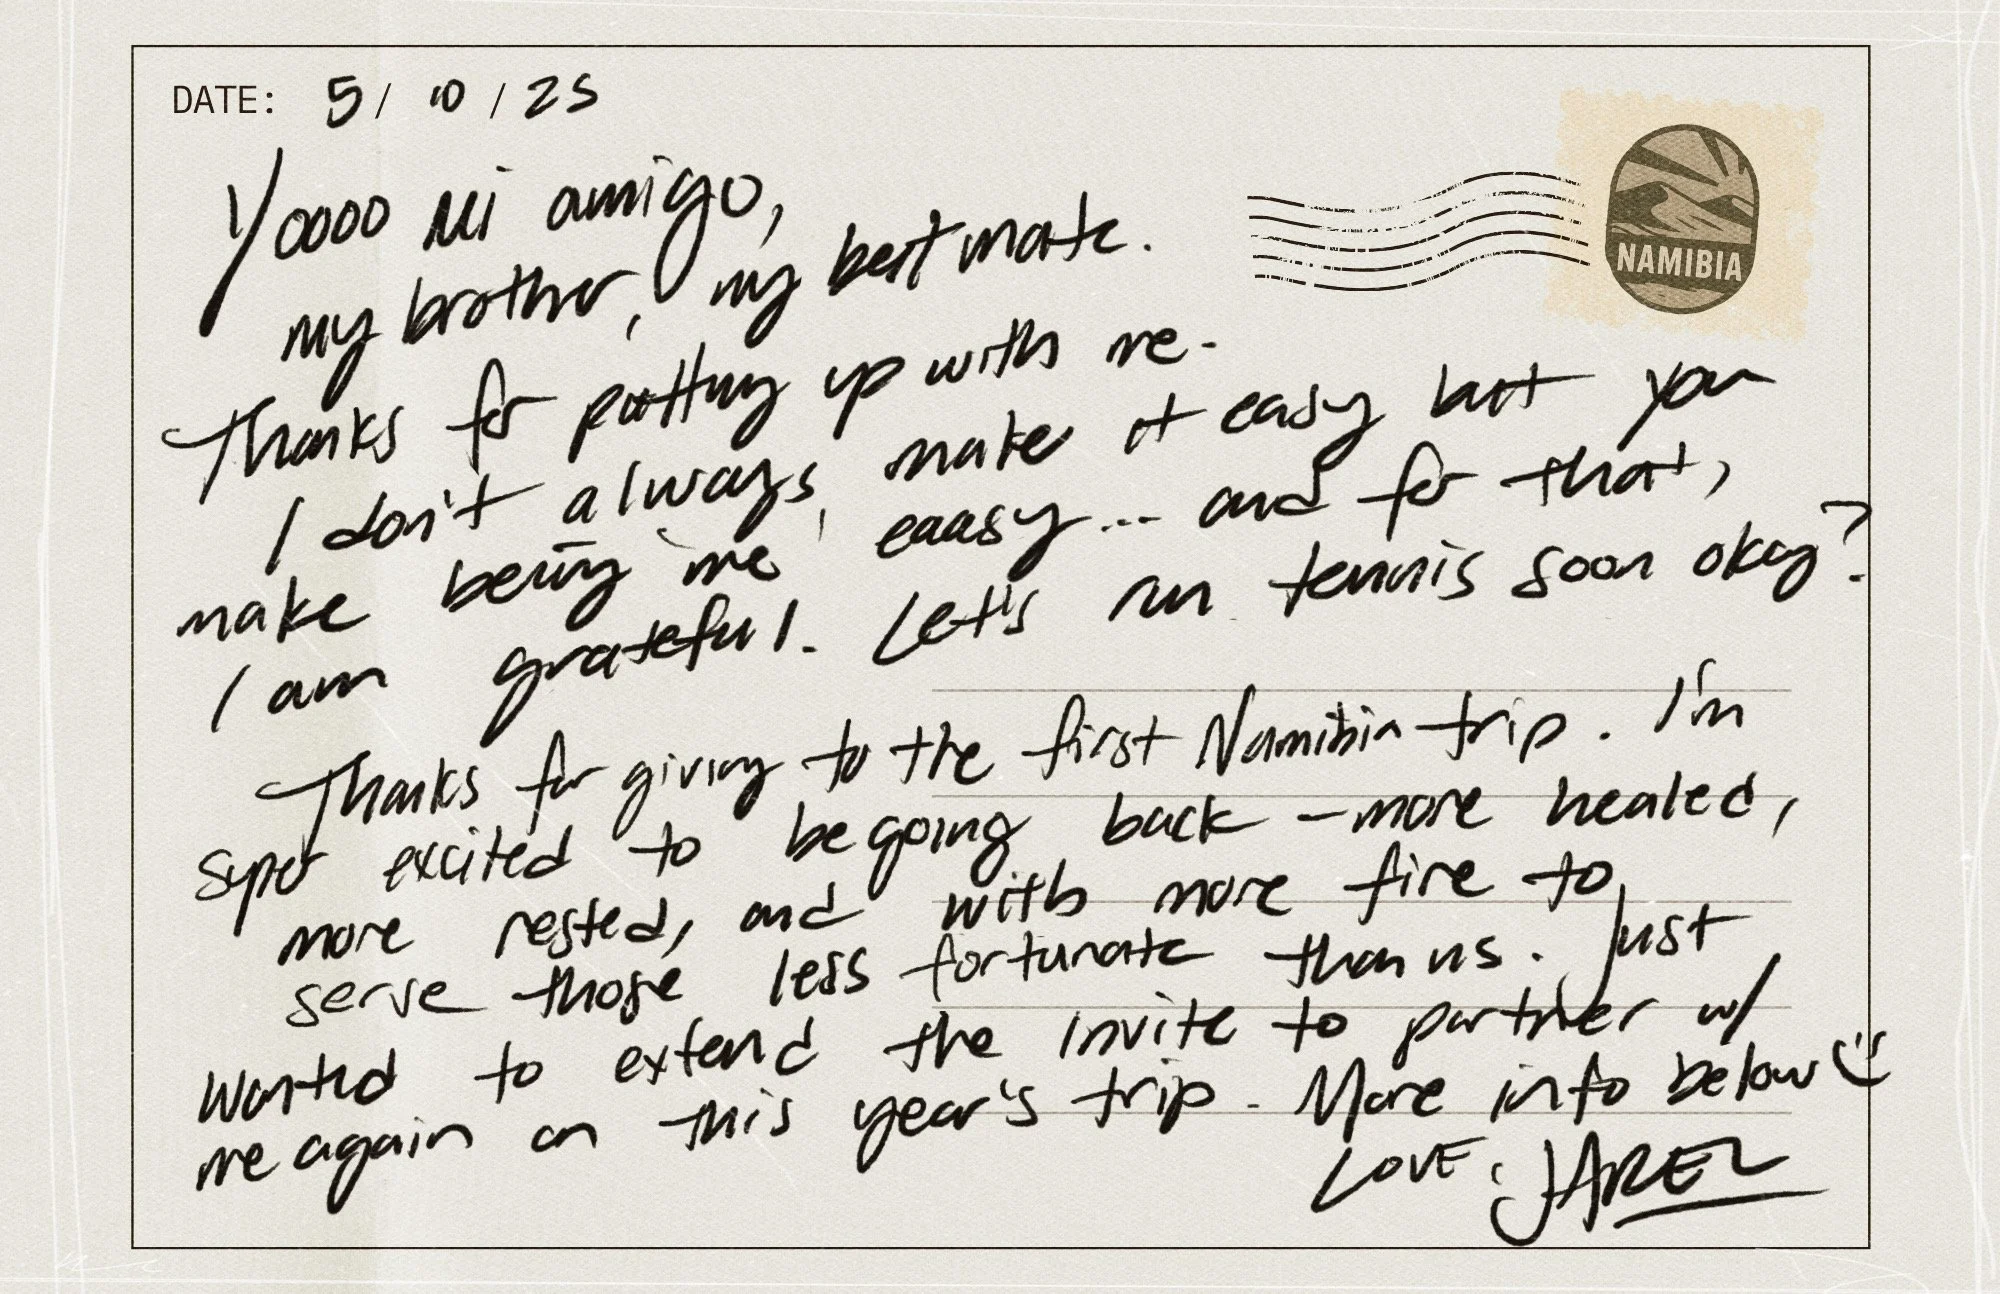 DATE: 5 / 10 / 25
NAMIBIA
Yoooo Mi amigo,
my brother, my best mate.
Thanks for putting up with me.
I don't always make it easy but you
make being 'me' eaasy... and for that,
I am grateful. Let's run tennis soon okay?
Thanks for giving to the first Namibia trip. I'm
super excited to be going back - more healed,
more rested, and with more fire to
serve those less fortunate than us. Just
wanted to extend the invite to partner w/
me again on this year's trip. More info below
LOVE, JAREL